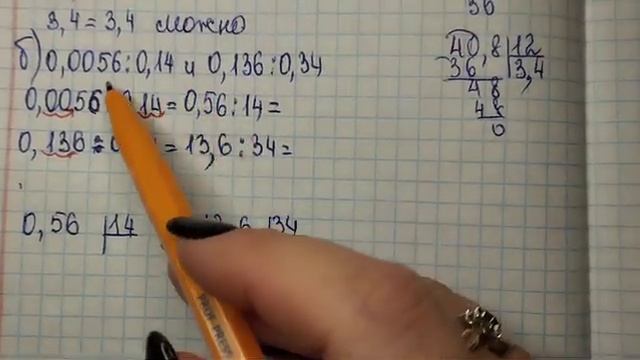 3,4 = 3,4 можно
б) 0,0056 : 0,14 и 0,136 : 0,34
0,0056 14 = 0,56 : 14 =
0,136 : 0 = 13,6 : 34 =
0,56 14 6 34
36
40,8 12
36 3,4
48
48
0